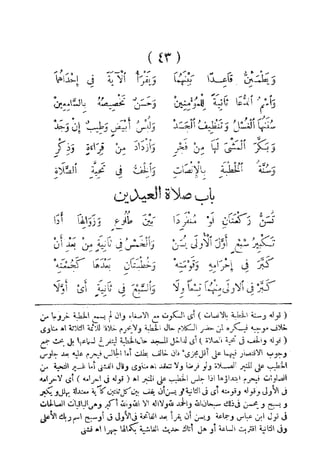 ( ٤٣ )
وَيَطْمَئِنُّ قَاعِدًا بَيْنَهُمَا وَيَقْرَأُ الْآيَةَ فِي إِحْدَاهُمَا
وَاسْمُ الدُّعَا ثَانِيَةً لِلْمُؤْمِنِينْ وَحَسَنٌ تَخْصِيصُهُ بِالسَّامِعِينْ
سُنَنُهَا الْغُسْلُ وَتَنْظِيفُ الْجَسَدْ وَلُبْسُ أَبْيَضٍ وَطِيبٌ إِنْ وَجَدْ
وَبَكَّرَ الْمَشْيَ لَهَا مِنْ فَجْرِ وَازْدَادَ مِنْ قِرَاءَةٍ وَذِكْرِ
وَسُنَّةُ الْخُطْبَةِ بِالْإِنْصَاتِ وَالْخِفُّ فِي تَحِيَّةِ الصَّلَاةِ
باب صلاة العيدين
تُسَنُّ رَكْعَتَانِ لَوْ مُنْفَرِدَا بَيْنَ طُلُوعٍ وَزَوَالِهَا أَدَا
تَكْبِيرُ سَبْعٍ أَوَّلَ الْأُولَى يُسَنْ وَالْخَمْسُ فِي ثَانِيَةٍ مِنْ بَعْدِ أَنْ
كَبَّرَ فِي إِحْرَامِهِ وَقَوْمَتِهِ وَخُطْبَتَانِ بَعْدَهَا كَجُمْعَتِهِ
كَبَّرَ فِي الْأُولَى مِنْهُمَا تِسْعًا وِلَا وَالسَّبْعَ فِي ثَانِيَةٍ أَيْ أَوَّلَا
( قوله وسنة الخطبة بالانصات ) أى السكوت مع الاصغاء وان لم يسمع الخطبة خروجا من
خلاف موجبه فيكره لمن حضر السكلام حال الخطبة ولا يحرم خلافا للأئمة الثلاثة اه مناوى
( قوله والخف فى تحية الصلاة ) أى لداخل المسجد
ووجوب الاقتصار فيهما على أقل مجزئ فان خالف بطلت أما الجالس فيحرم عليه بعد جلوس
الخطيب على المنبر الصلاة ولو فرضا ولا تنعقد اه مناوى وقال الفشنى أما غير التحية من
الصلوات فيحرم ابتداؤها اذا جلس الخطيب على المنبر اه ( قوله فى احرامه ) أى لاحرامه
فى الأولى وقوله وقومته أى فى ثانية يقف بين كل ثنتين كآية معتدلة يهلل ويكبر
و يسبح و يحسن فى ذلك سبحان الله والحمد لله ولا اله الا الله والله أكبر وهى الباقيات الصالحات
فى قول ابن عباس وجماعة ويسن أن يقرأ بعد الفاتحة فى الأولى ق أو سبح اسم ربك الأعلى
وفى الثانية اقتربت الساعة أو هل أتاك حديث الغاشية بكمالها جهرا اه فشنى